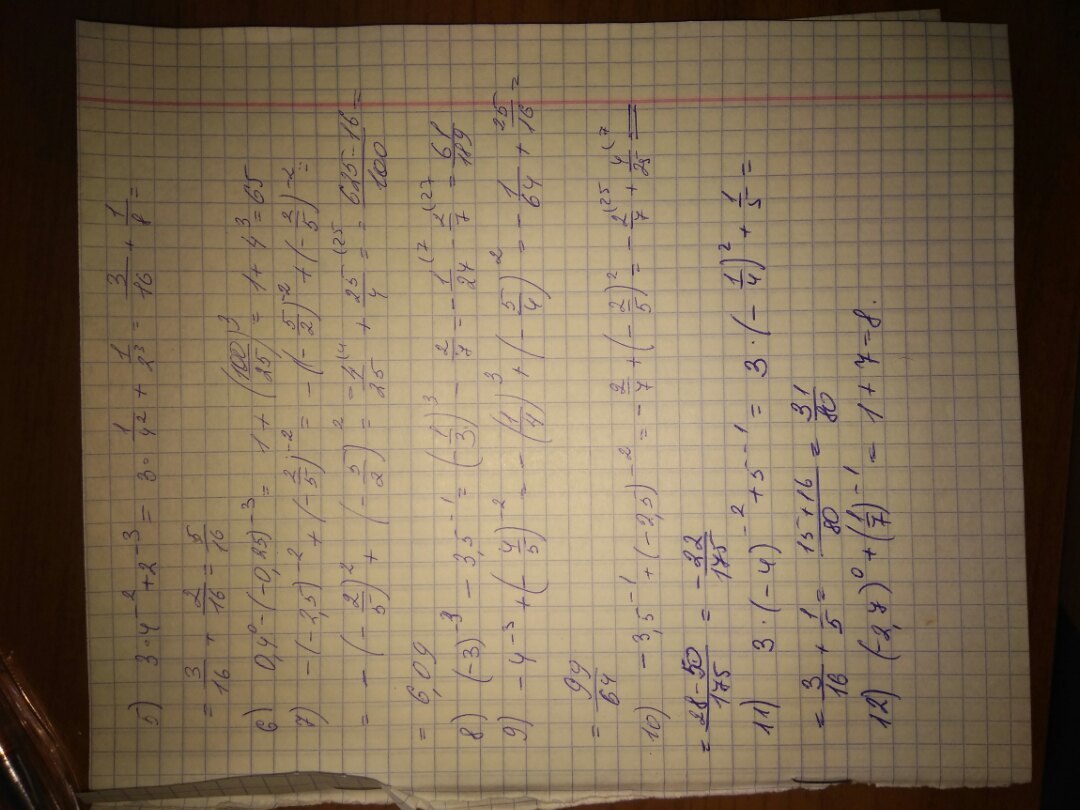 5) 3·4^-2 + 2^-3 = 3·1/4^2 + 1/2^3 = 3/16 + 1/8 =
= 3/16 + 2/16 = 5/16
6) 0,4^0 - (-0,25)^-3 = 1 + (100/25)^3 = 1 + 4^3 = 65
7) -(-2,5)^-2 + (-2/5)^-2 = -(-5/2)^-2 + (-2/5)^-2 =
= -(-2/5)^2 + (-5/2)^2 = -4/25 (4 + 25/4 (25 = 625-16/100 =
= 6,09
8) (-3)^-3 - 3,5^-1 = (-1/3)^3 - 2/7 = -1/27 (7 - 2/7 (27 = 61/189
9) -4^-3 + (-4/5)^-2 = -(1/4)^3 + (-5/4)^2 = -1/64 + 25/16 =
= 99/64
10) -3,5^-1 + (-2,5)^-2 = -2/7 + (-2/5)^2 = -2/7 (25 + 4/25 (7 =
= 28-50/175 = -22/175
11) 3·(-4)^-2 + 5^-1 = 3·(-1/4)^2 + 1/5 =
= 3/16 + 1/5 = 15+16/80 = 31/80
12) (-2,7)^0 + (1/7)^-1 = 1 + 7 = 8.